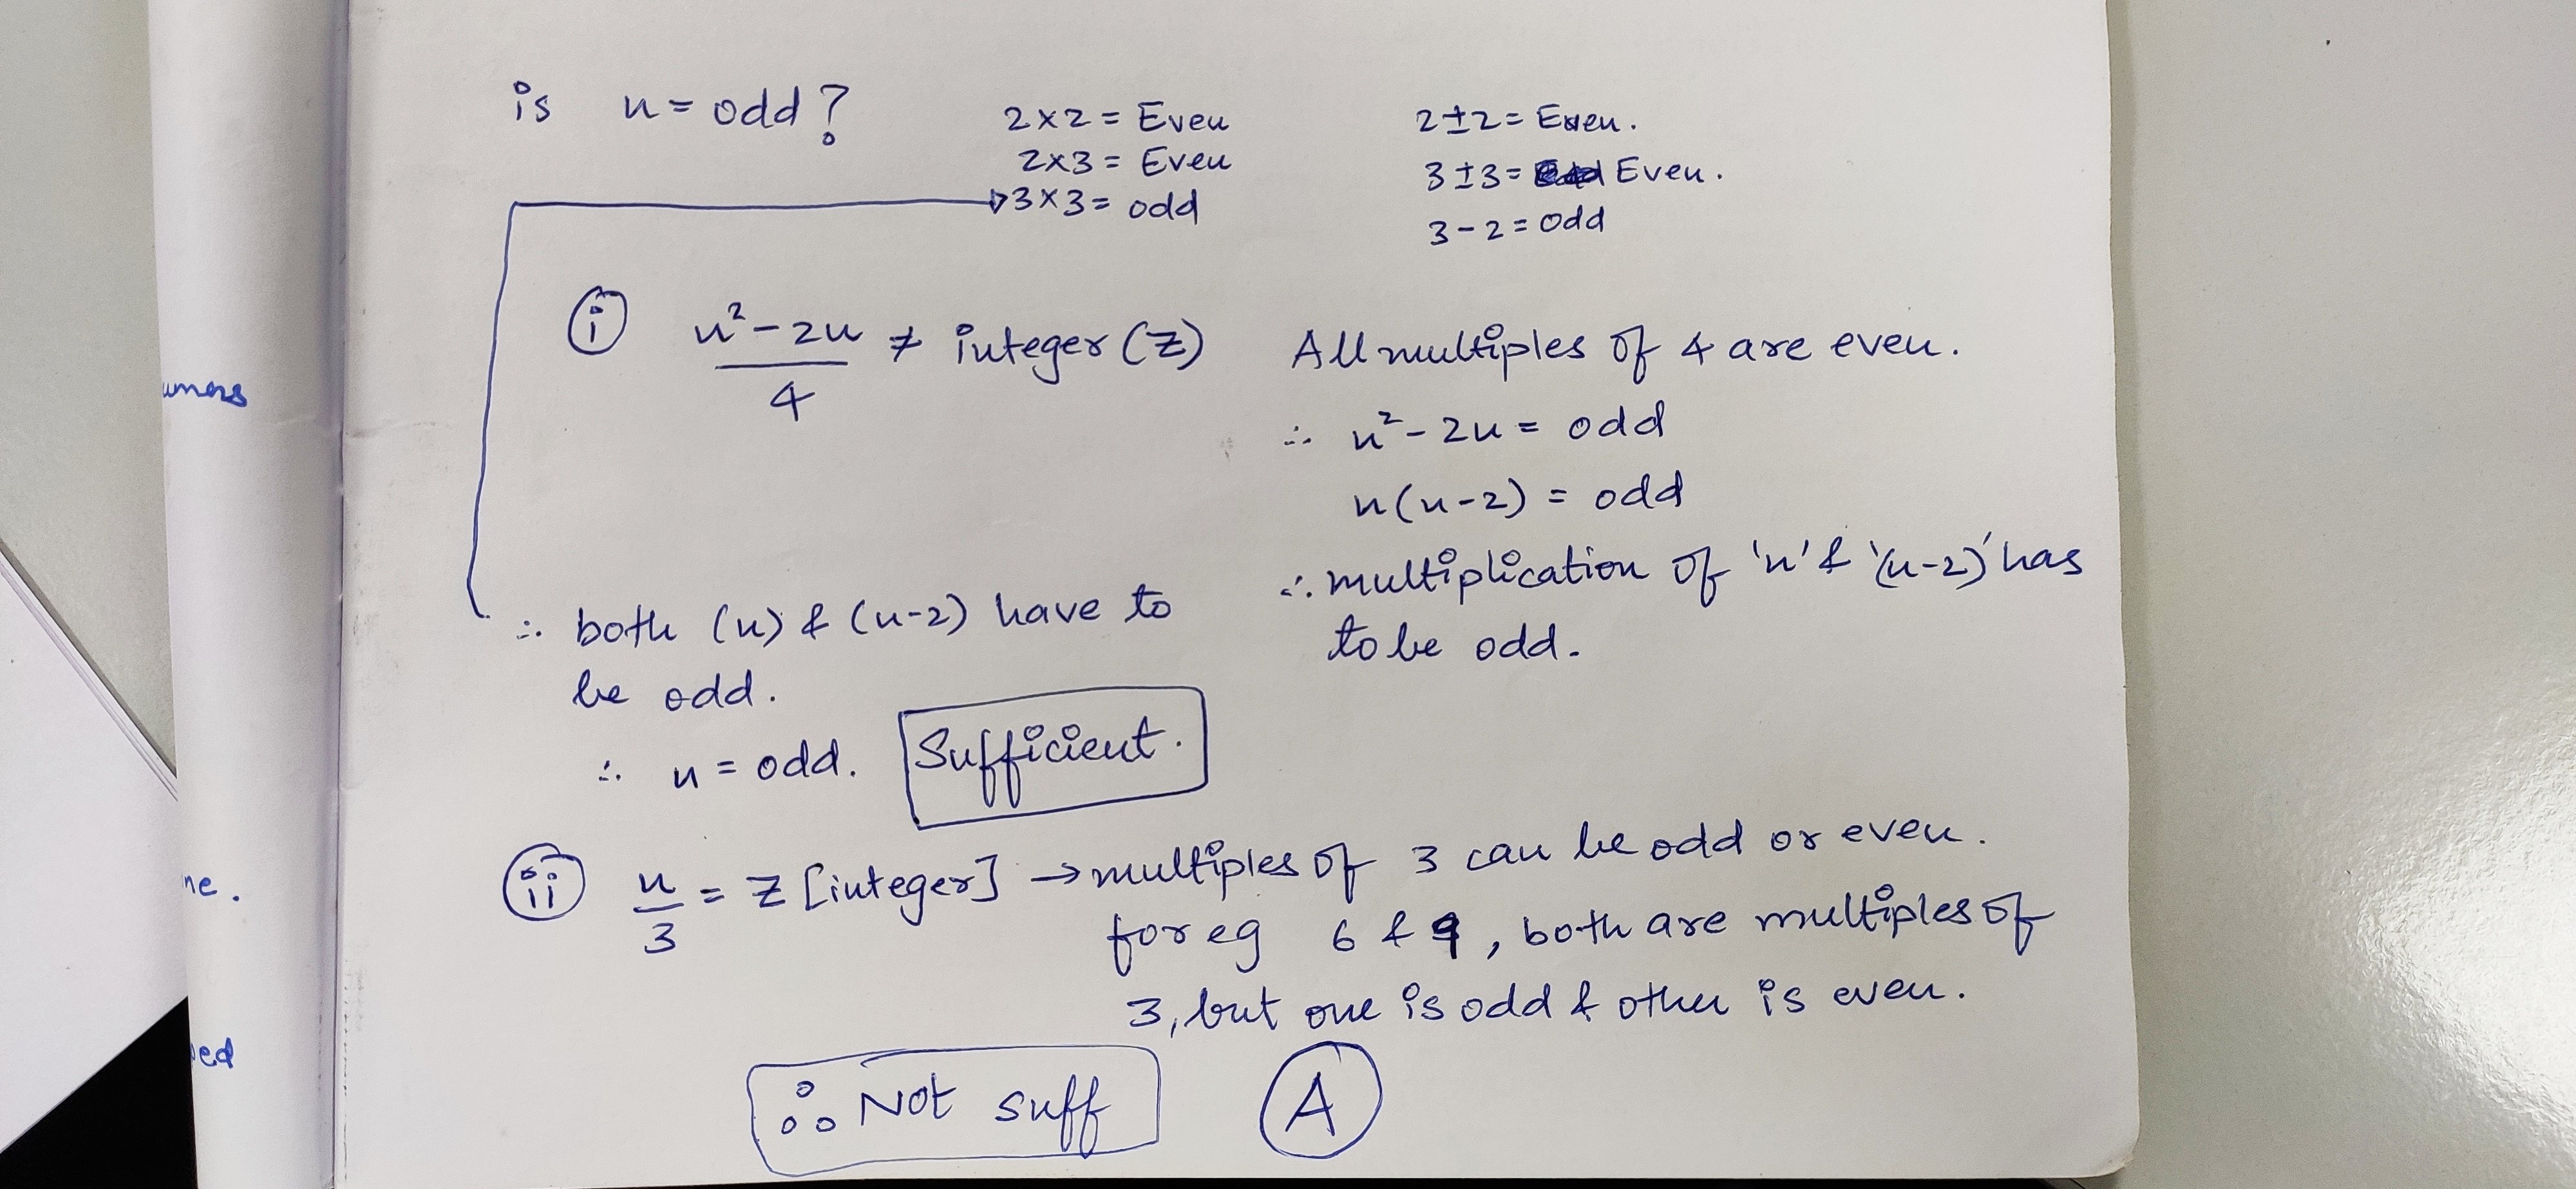 is n = odd?
2×2 = Even
2×3 = Even
3×3 = odd
2±2 = Even.
3±3 = Even.
3-2 = Odd
(i) n²-2n / 4 ≠ integer (Z)
All multiples of 4 are even.
∴ n²-2n = odd
n(n-2) = odd
∴ multiplication of 'n' & '(n-2)' has
to be odd.
∴ both (n) & (n-2) have to
be odd.
∴ n = odd. Sufficient.
(ii) n/3 = Z [integer] → multiples of 3 can be odd or even.
for eg 6 & 9, both are multiples of
3, but one is odd & other is even.
∴ Not suff
A
umers
ne.
ed